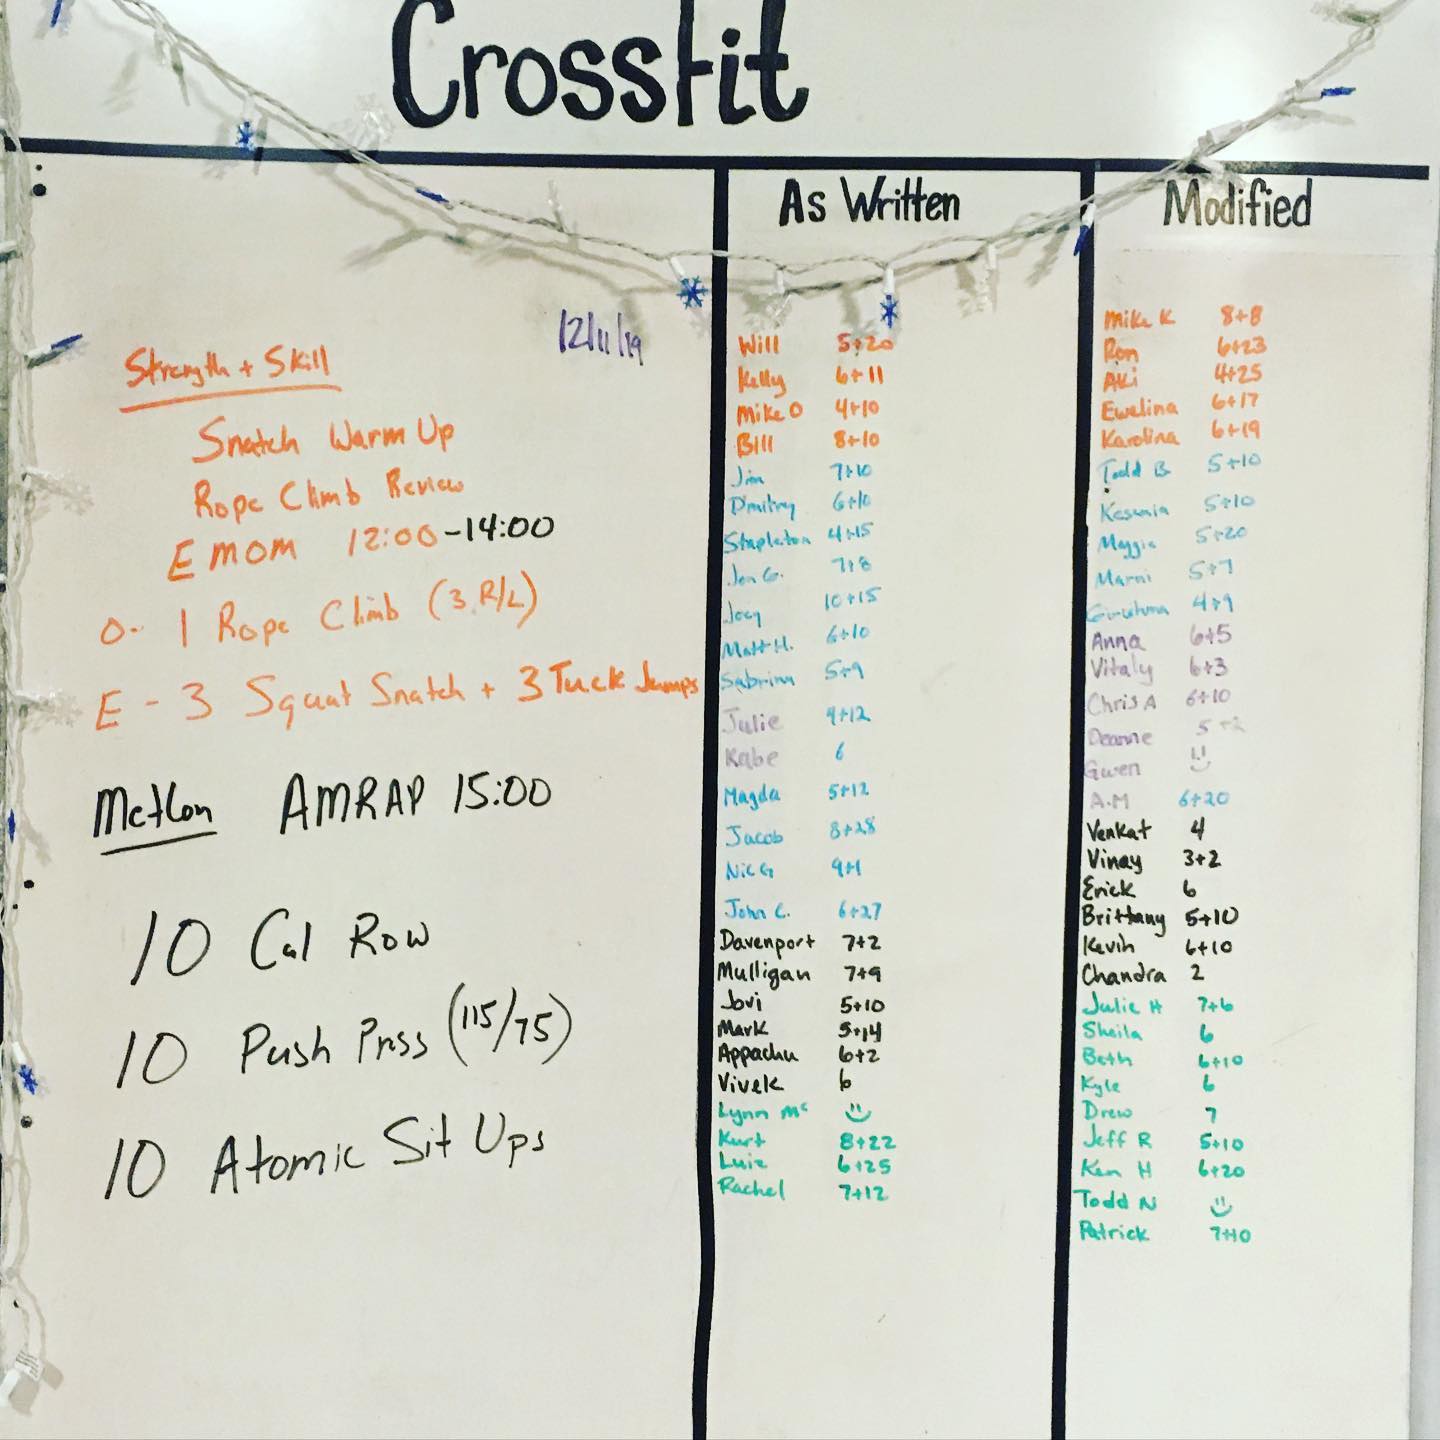 CrossFit
12/11/19
Strength + Skill
Snatch Warm Up
Rope Climb Review
EMOM 12:00-14:00
O- 1 Rope Climb (3 R/L)
E - 3 Squat Snatch + 3 Tuck Jumps
MetCon AMRAP 15:00
10 Cal Row
10 Push Press (115/75)
10 Atomic Sit Ups
As Written
Will 5+20
Kelly 6+11
Mike O 4+10
Bill 8+10
Jim 7+10
Dmitry 6+10
Stapleton 4+15
Jen G. 7+8
Joey 10+15
Matt H. 6+10
Sabrina 5+9
Julie 9+12
Kabe 6
Magda 5+12
Jacob 8+28
Nic G 9+1
John C. 6+27
Davenport 7+2
Mulligan 7+9
Jovi 5+10
Mark 5+14
Appachu 6+2
Vivek 6
Lynn Mc
Kurt 8+22
Luiz 6+25
Rachel 7+12
Modified
Mike K 8+8
Ron 6+23
Aki 4+25
Ewelina 6+17
Karolina 6+19
Todd B 5+10
Kesenia 5+10
Maggie 5+20
Marni 5+7
4+9
Anna 6+5
Vitaly 6+3
Chris A 6+10
Deanne 5+2
Gwen
A.M 6+20
Venkat 4
Vinay 3+2
Erick 6
Brittany 5+10
Kevin 6+10
Chandra 2
Julie H 7+6
Sheila 6
Beth 6+10
Kyle 6
Drew 7
Jeff R 5+10
Ken H 6+20
Todd N
Patrick 7+10